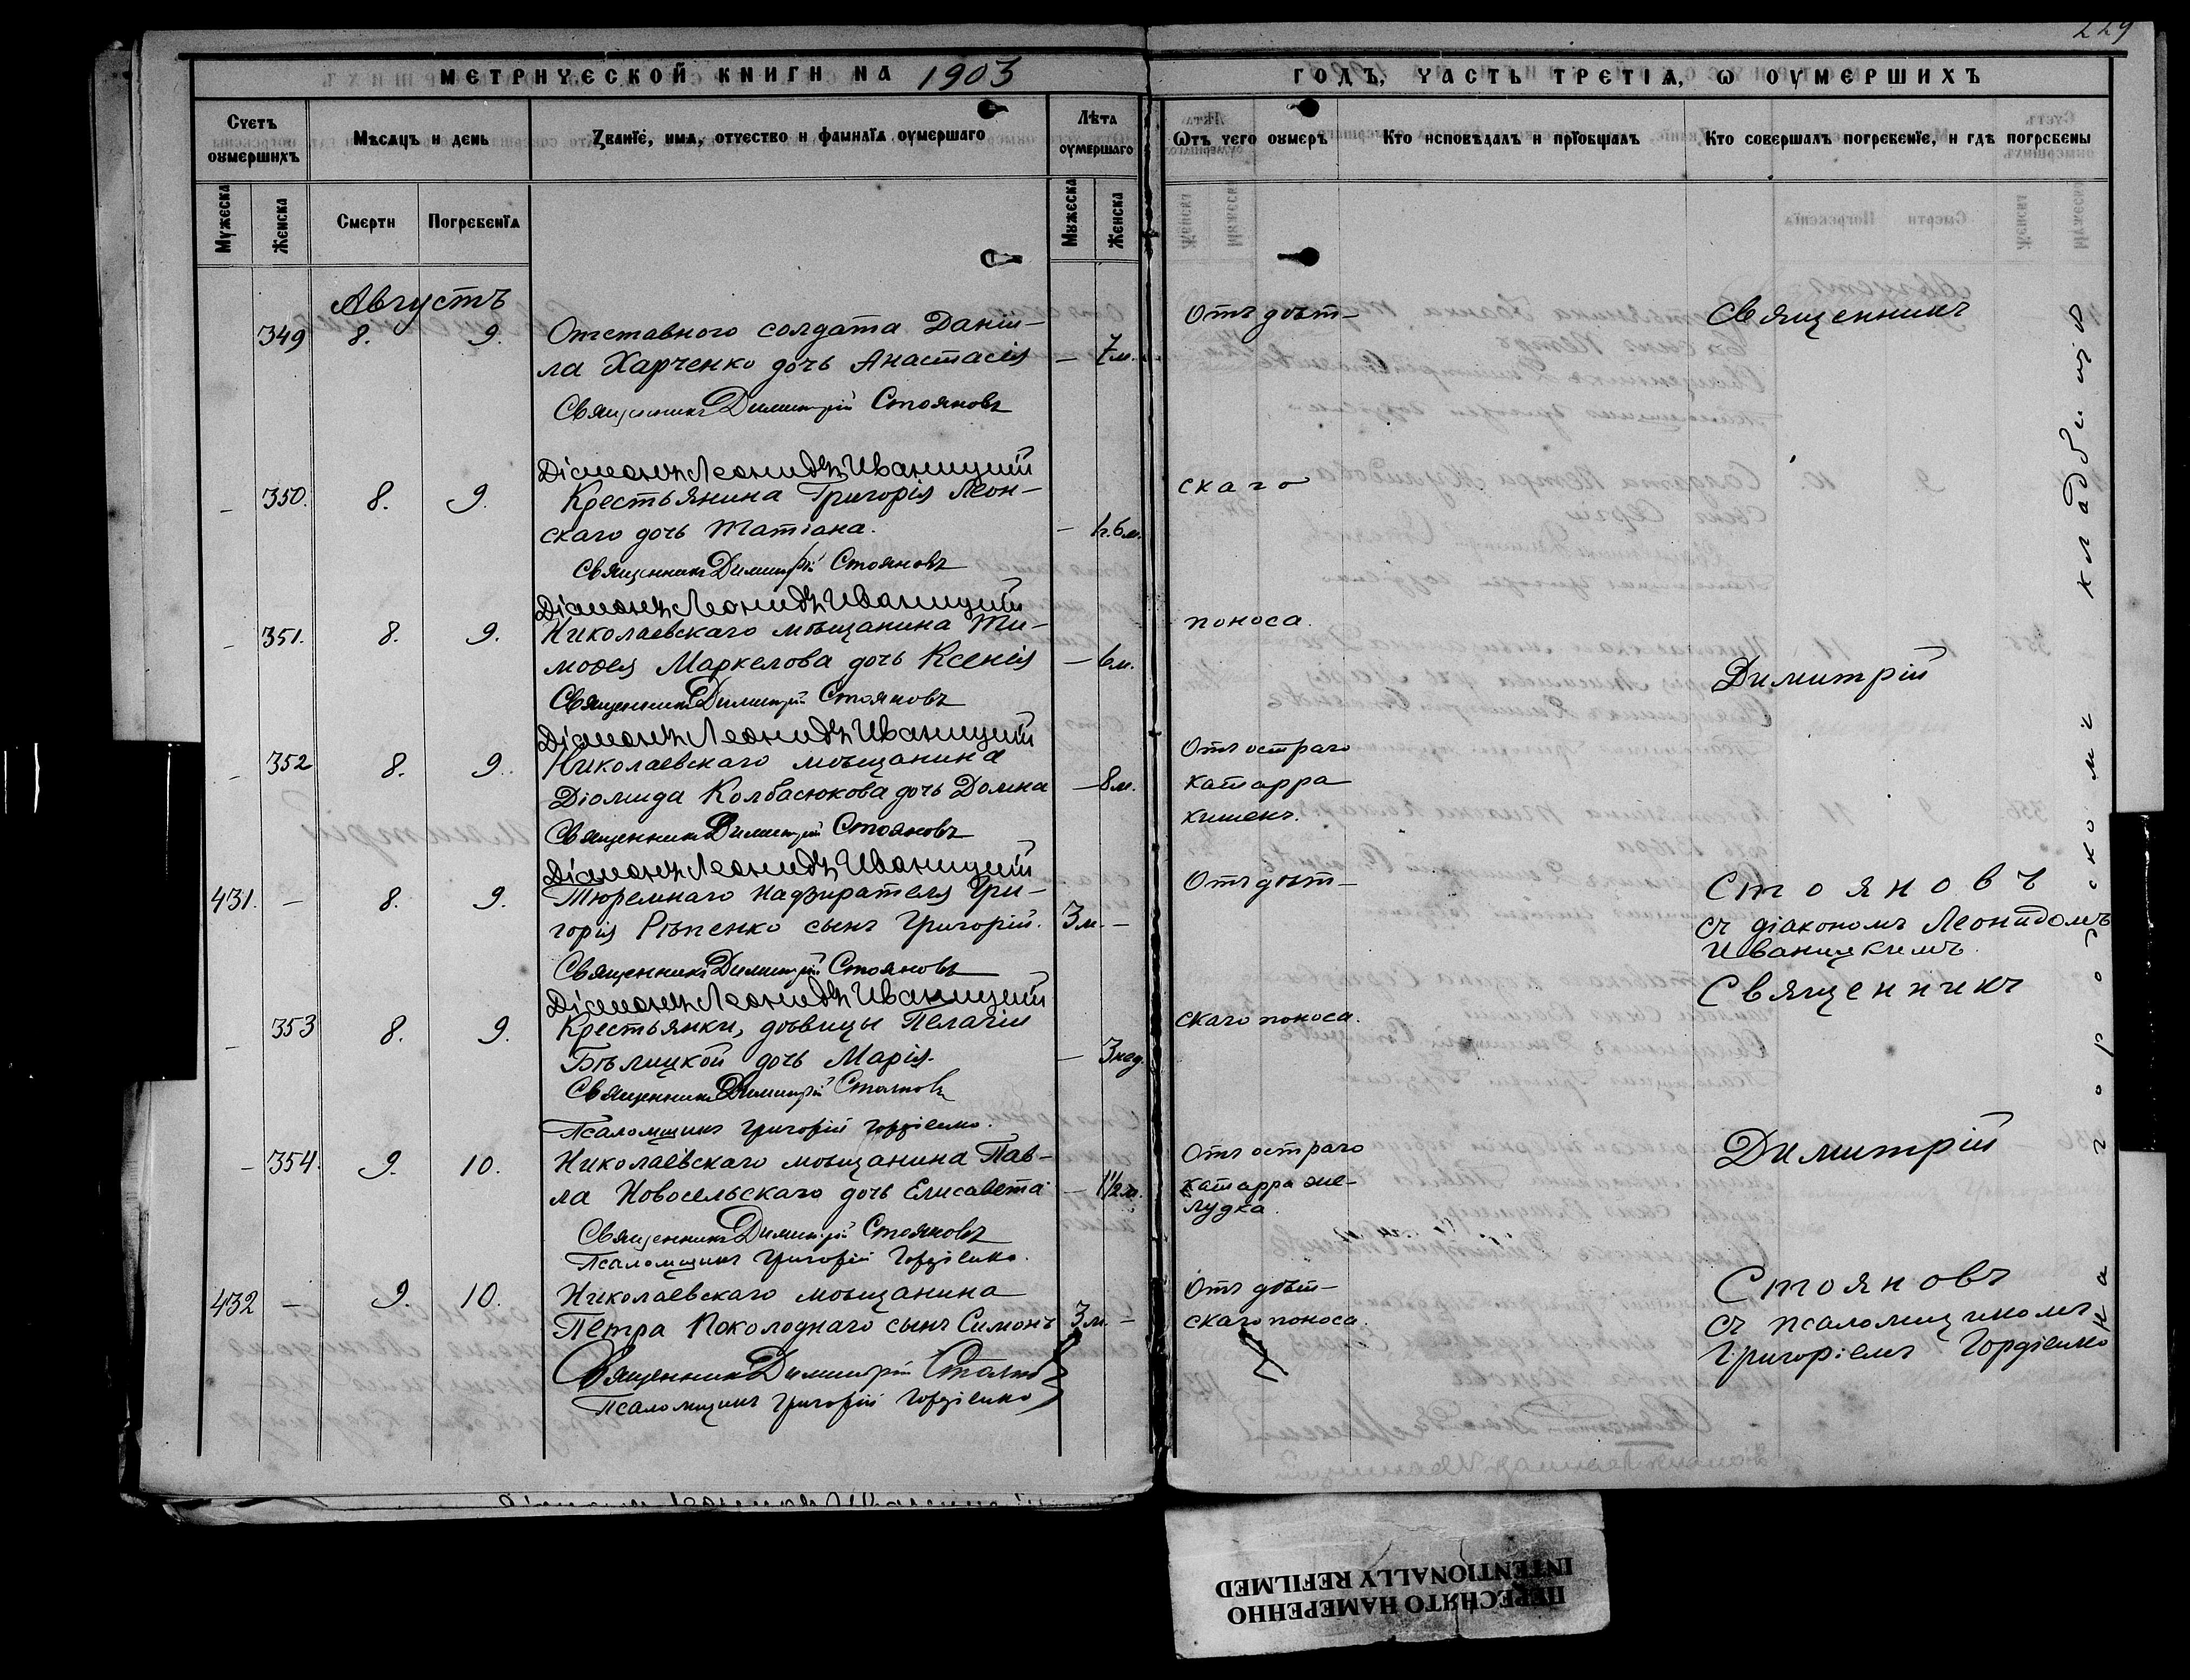 229
МЕТРИЧЕСКОЙ КНИГИ НА 1903
ГОДЪ, ЧАСТЬ ТРЕТІѦ, Ѡ ОУМЕРШИХЪ
Счетъ оумершихъ
Мѣсяцъ и день
Званїе, имя, отчество и фамилїя оумершаго
Лѣта оумершаго
Ѿтъ чего оумеръ
Кто исповѣдалъ и прїобщалъ
Кто совершалъ погребенїе, и гдѣ погребены
Мужеска
Женска
Смерти
Погребенїя
Мужеска
Женска
Августъ
349 8. 9. Отставного солдата Даніи-
ла Харченко дочь Анастасія — 7 м.
Священникъ Димитрій Стояновъ
Діаконъ Леонидъ Иваницкій
— 350. 8. 9. Крестьянина Григорія Леон-
скаго дочь Татіана. — 1г. 6 м.
Священникъ Димитрій Стояновъ
Діаконъ Леонидъ Иваницкій
— 351. 8. 9. Николаевскаго мѣщанина Ти-
моѳея Маркелова дочь Ксенія — 6 м.
Священникъ Димитрій Стояновъ
Діаконъ Леонидъ Иваницкій
— 352 8. 9. Николаевскаго мѣщанина
Діомида Колбасюкова дочь Домна — 8 м.
Священникъ Димитрій Стояновъ
Діаконъ Леонидъ Иваницкій
431. — 8. 9. Тюремнаго надзирателя Гри-
горія Рѣпенко сынъ Григорій. 3 м. —
Священникъ Димитрій Стояновъ
Діаконъ Леонидъ Иваницкій
— 353 8. 9. Крестьянки, дѣвицы Пелагіи
Бѣлицкой дочь Марія. — 3 нед.
Священникъ Димитрій Стояновъ
Псаломщикъ Григорій Гордіенко.
— 354. 9. 10. Николаевскаго мѣщанина Пав-
ла Новосельскаго дочь Елисавета — 1½ м.
Священникъ Димитрій Стояновъ
Псаломщикъ Григорій Гордіенко.
432 — 9. 10. Николаевскаго мѣщанина
Петра Поколоднаго сынъ Симонъ 3 м. —
Священникъ Димитрій Стояновъ
Псаломщикъ Григорій Гордіенко
Отъ дѣт-
скаго
поноса.
Отъ остраго
катарра
кишекъ.
Отъ дѣт-
скаго поноса.
Отъ остраго
катарра же-
лудка.
Отъ дѣт-
скаго поноса.
Священникъ
Димитрій
Стояновъ
съ діакономъ Леонидомъ
Иваницкимъ.
Священникъ
Димитрій
Стояновъ
съ псаломщикомъ
Григоріемъ Гордіенко
на городскомъ кладбищѣ
ПЕРЕСНЯТО НАМЕРЕННО
INTENTIONALLY REFILMED